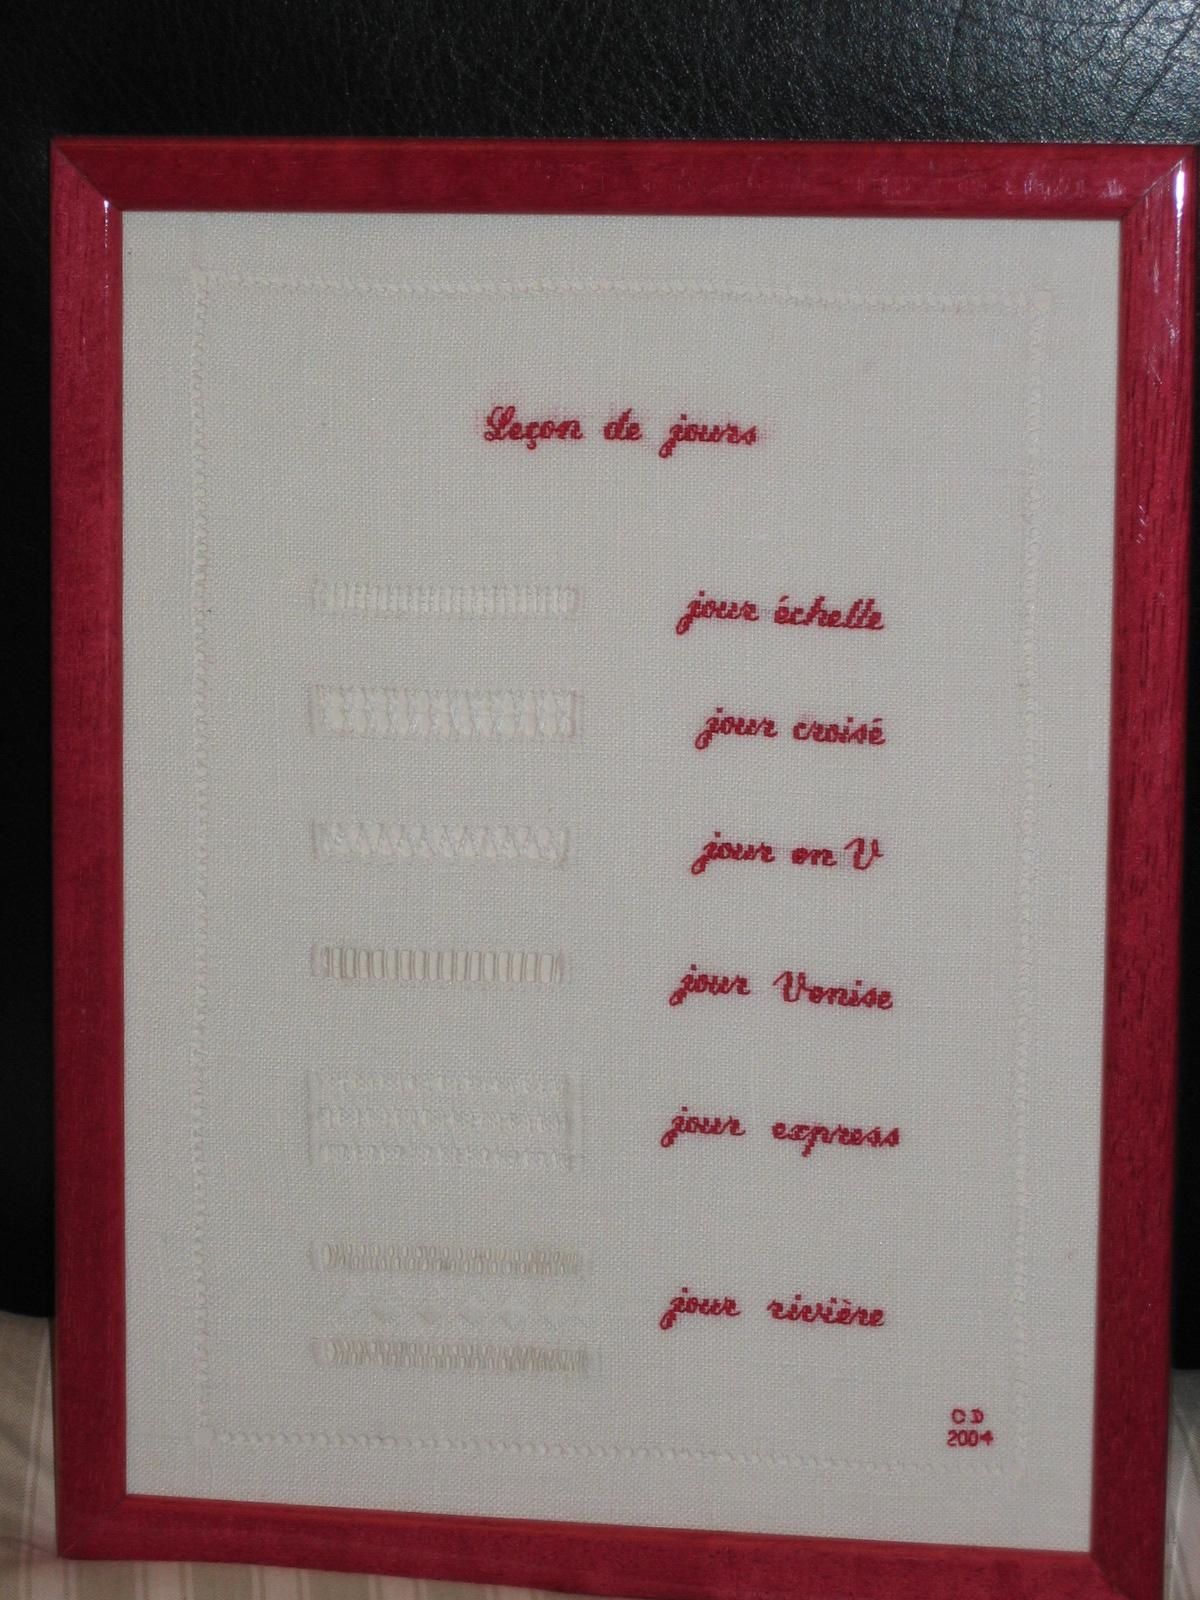 Leçon de jours
jour échelle
jour croisé
jour en V
jour Venise
jour express
jour rivière
CD
2004